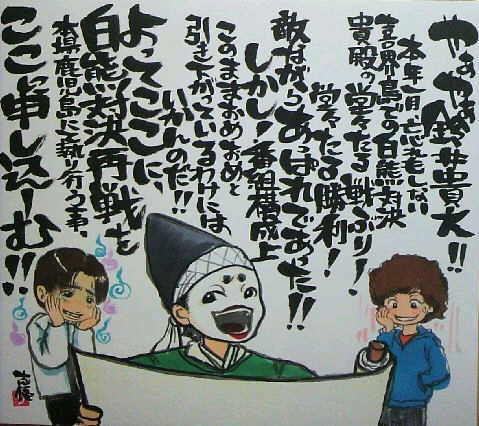 やあやあ鈴井貴大!!
本年一月、忘れもしない
喜界島での白熊対決
貴殿の堂々たる戦ぶり!
堂々たる勝利!
敵ながらあっぱれであった!!
しかし!番組構成上
このままおめおめと
引き下がっているわけには
いかんのだ!!
よってここに、
白熊対決再戦を
本県鹿児島に執り行う事、
ここに申し込ーむ!!